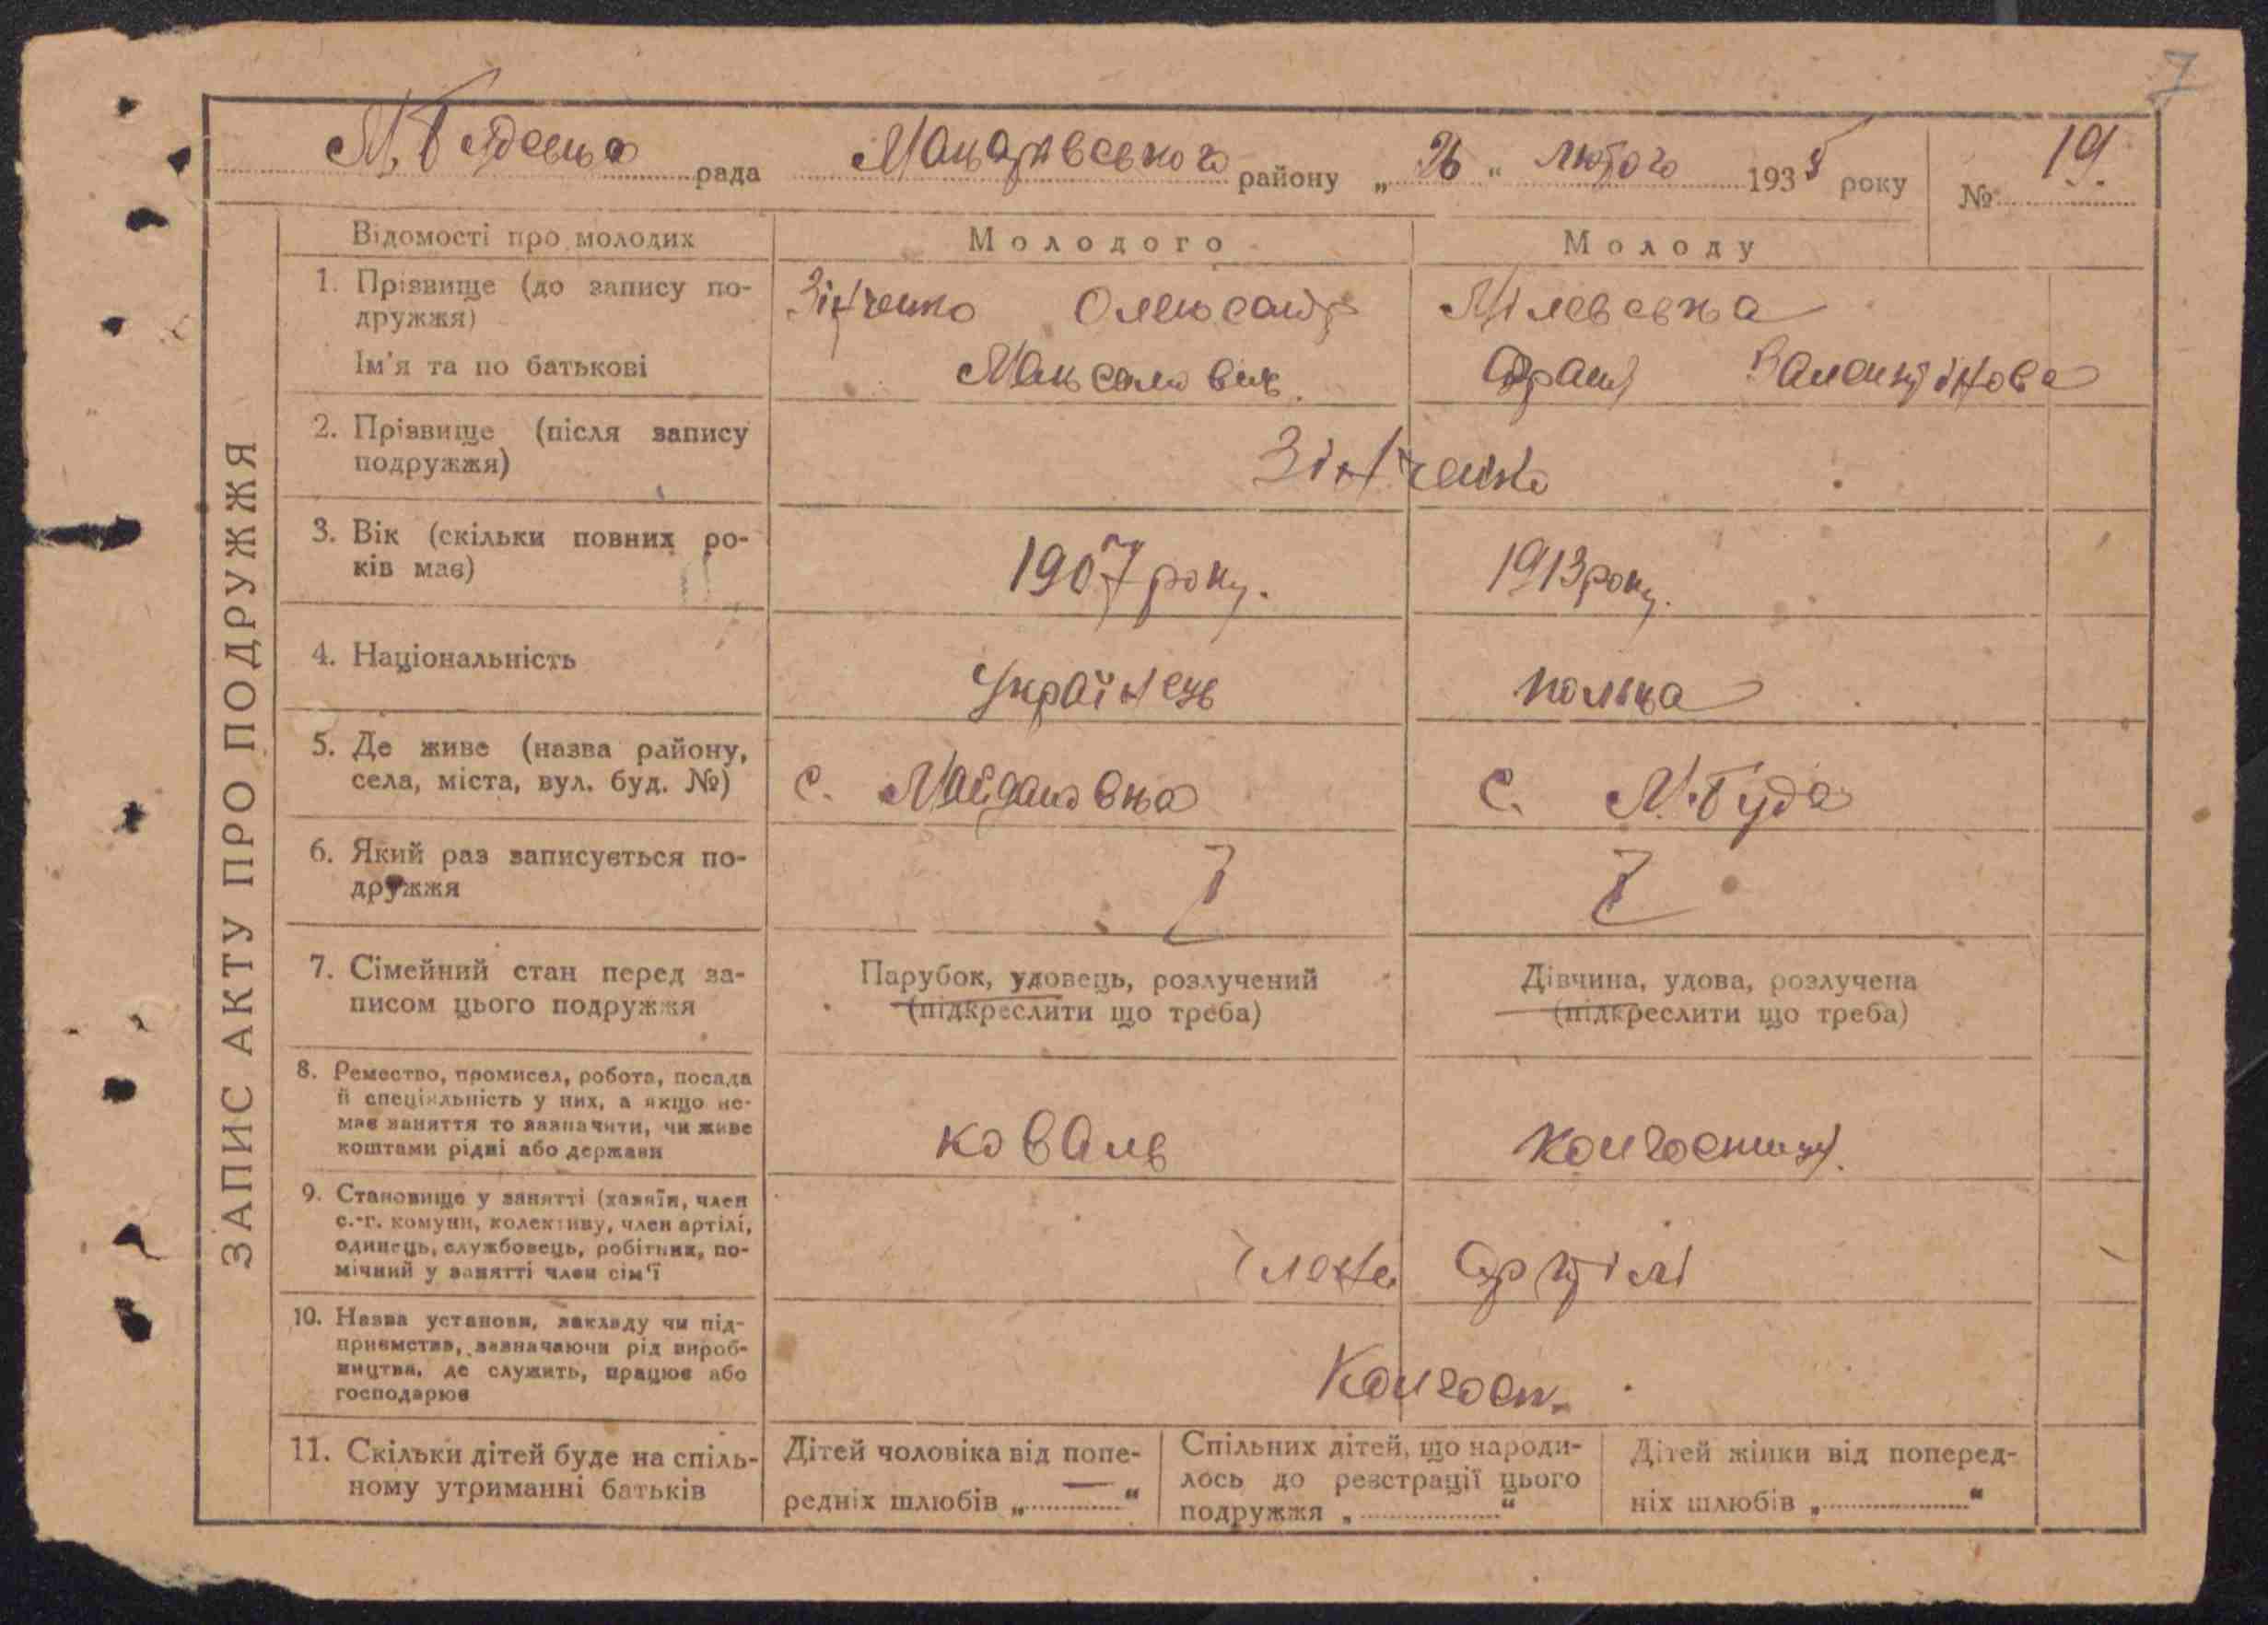 7
М. Будська рада Макарівського району „ 26 “ лютого 1935 року № 19.
ЗАПИС АКТУ ПРО ПОДРУЖЖЯ
Відомості про молодих
Молодого
Молоду
1. Прізвище (до запису по-
дружжя)
Ім'я та по батькові
Зінченко Олександр
Максимович.
Мілевська
Валентінова
2. Прізвище (після запису
подружжя)
Зінченко
3. Вік (скільки повних ро-
ків має)
1907 року.
1913 року.
4. Національність
Українець
полька
5. Де живе (назва району,
села, міста, вул. буд. №)
с. Майдановка
с. М. Буда
6. Який раз записується по-
дружжя
I
I
7. Сімейний стан перед за-
писом цього подружжя
Парубок, удовець, розлучений
(підкреслити що треба)
Дівчина, удова, розлучена
(підкреслити що треба)
8. Ремество, промисел, робота, посада
й спеціяльність у них, а якщо не-
має заняття то зазначити, чи живе
коштами рідні або держави
коваль
колгоспниця.
9. Становище у занятті (хазяїн, член
с.-г. комуни, колективу, член артілі,
одинець, службовець, робітник, по-
мічний у занятті член сім'ї
члени артілі
10. Назва установи, закладу чи під-
приємства, зазначаючи рід вироб-
ництва, де служить, працює або
господарює
Колгосп.
11. Скільки дітей буде на спіль-
ному утриманні батьків
Дітей чоловіка від попе-
редніх шлюбів „ — “
Спільних дітей, що народи-
лось до реєстрації цього
подружжя „ “
Дітей жінки від поперед-
ніх шлюбів „ “